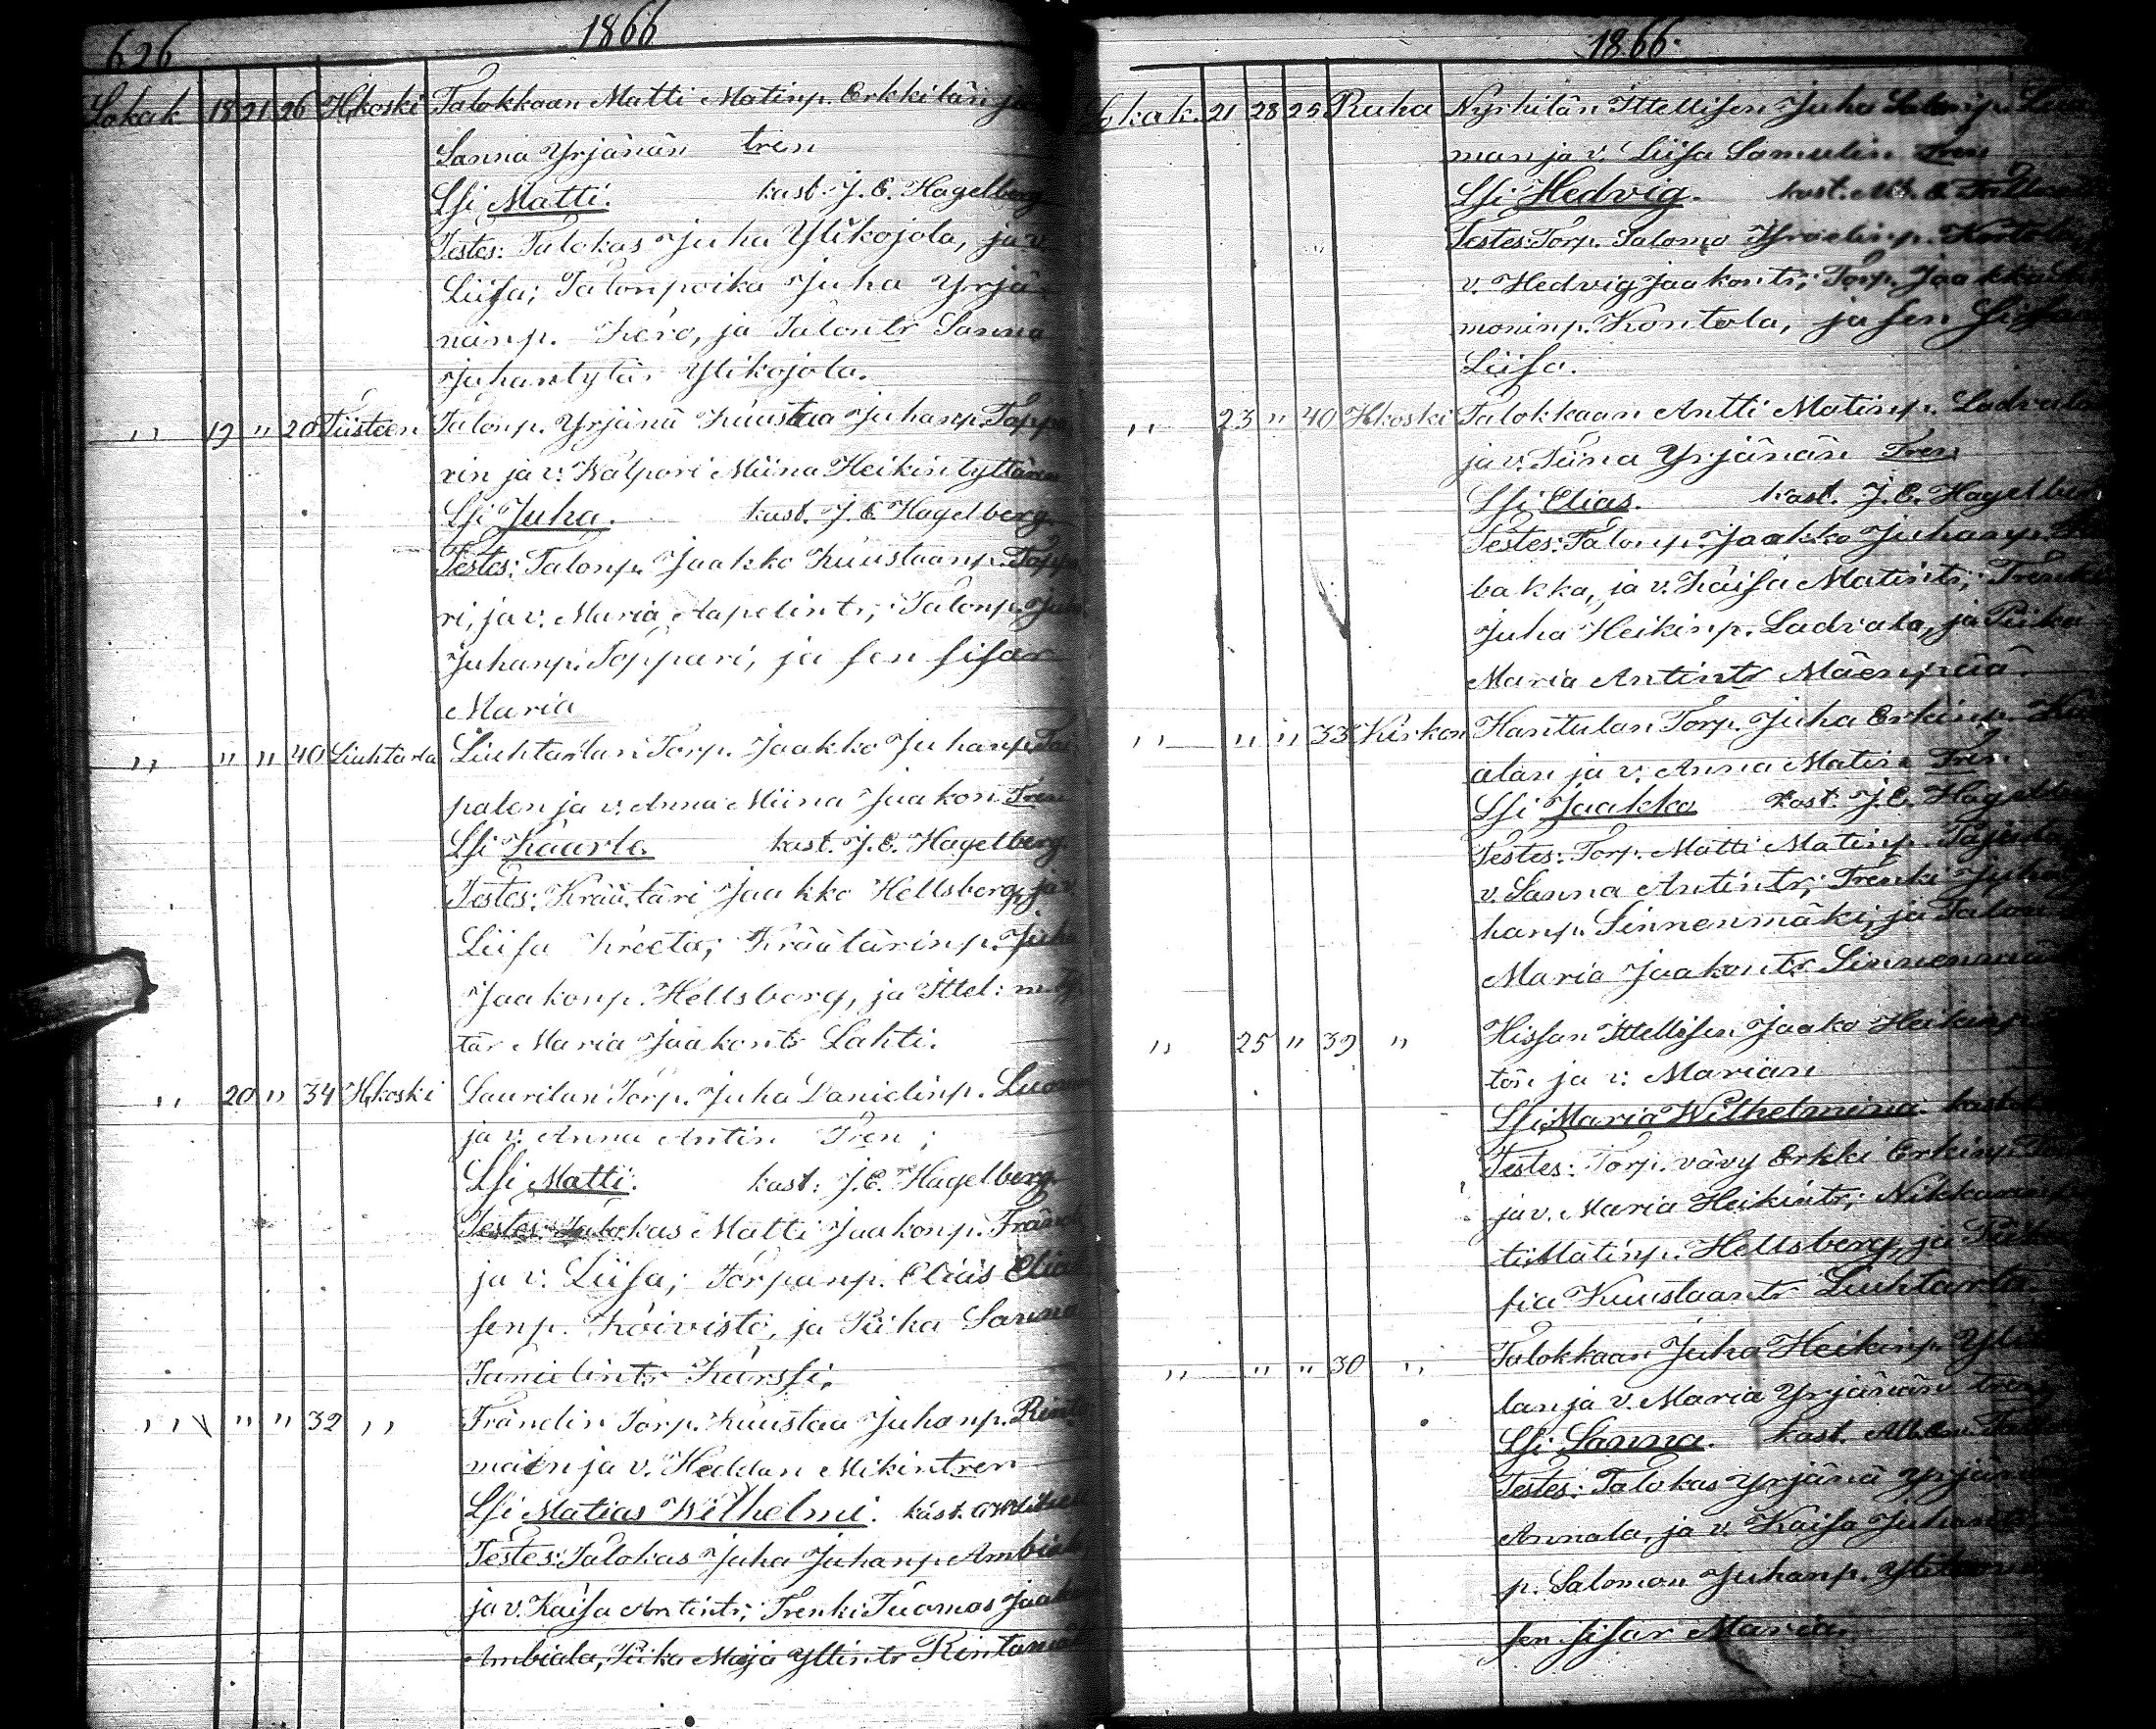 626 1866
Lokak 18 21 26 Hkoski Talokkaan Matti Matinp. Erkkilän ja
Sanna Yrjänän tren
Lsi Matti. kast. J. E. Hagelberg
Testes: Talokas Juha Ylikojola, ja v.
Liisa; Talonpoika Juha Yrjä-
nänp. Kero, ja Talontr Sanna
Juhantytär Ylikojola.
" 19 " 20 Tiisteen Talonp. Yrjänä Kuustaa Juhanp. Toppa
rin ja v. Walpori Miina Heikintyttären
Lsi Juha. kast. J. E. Hagelberg.
Testes: Talonp. Jaakko Kuustaanp. Toppa
ri, ja v. Maria Aapelintr; Talonp. Juha
Juhanp. Toppari, ja sen sisar
Maria
" " " 40 Liuhtarla Liuhtarlan Torp. Jaakko Juhanp. Tai
palen ja v. Anna Miina Jaakon Tren
Lsi Kaarle. kast. J. E. Hagelberg.
Testes: Kräätäri Jaakko Hellsberg, ja v
Liisa Kreeta; Kräätärinp. Juha
Jaakonp. Hellsberg, ja Ittel:
tär Maria Jaakontr Lahti.
" 20 " 34 Hkoski Laurilan Torp. Juha Danielinp. Luoma
ja v. Anna Antin Tren;
Lsi Matti. kast: J. E. Hagelberg
Testes: Talokas Matti Jaakonp. Fränd
ja v. Liisa; Torpanp. Elias Elia
senp. Koivisto, ja Piika Sanna
Danielintr
" " " 32 " Frändin Torp. Kuustaa Juhanp. Rinta
mäen ja v. Heddan Mikintren
Lsi Matias Wilhelmi. kast.
Testes: Talokas Juha Juhanp Ambiala
ja v. Kaisa Antintr; Trenki Tuomas Jaak
Ambiala, Piika Maja Rintamä
1866.
Lokak. 21 28 25 Ruha Nyrhilän Ittellisen Juha Salomip.
man ja v. Liisa Samulin Tren
Lsi Hedvig. kast.
Testes: Torp. Salomo Kontola
v. Hedvig Jaakontr; Torp. Jaakko
moninp. Kontola, ja sen sisar
Liisa.
" 23 " 40 Hkoski Talokkaan Antti Matinp. Ladvala
ja v. Tiina Yrjänän Tren
Lsi Elias. kast. J. E. Hagelberg
Testes: Talonp. Jaakko Juhanp.
bakka, ja v. Kaisa Matintr; Trenki
Juha Heikinp. Ladvala, ja Piika
Maria Antintr Mäenpää.
" " " 33 Kirkon Hantulan Torp. Juha Erkinp.
alan ja v. Anna Matin Tren
Lsi Jaakko kast. J. E. Hagelb
Testes: Torp. Matti Matinp.
v. Sanna Antintr; Trenki Juha
hanp. Linnenmäki; ja Talon
Maria Jaakontr Linnenmä
" 25 " 39 " Hissan Ittellisen Jaako Heikinp
tön ja v. Marian
Lsi Maria Wilhelmina. kast.
Testes: Torp. vävy Erkki Erkinp.
ja v. Maria Heikintr; Nikkarin
ti Matinp. Hellsberg, ja Piika
fia Kuustaantr Liuhtarla
" " " 30 " Talokkaan Juha Heikinp. Yli
lan ja v. Maria Yrjänän tren
Lsi Sanna. kast.
Testes: Talokas Yrjänä Yrjän
Annala, ja v. Kaisa Juhantr
p. Salomon Juhanp.
sen sisar Maria.